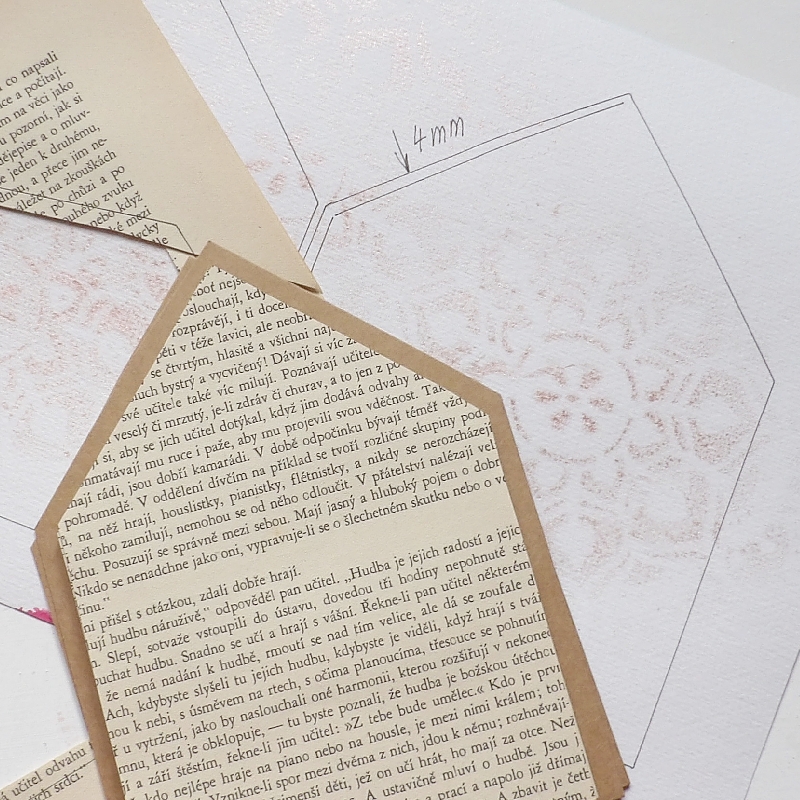 co napsali
ce a počítají.
m na věci jako
u pozorní, jak si
dějepise a o mluv-
e jeden k druhému,
dnou, a přece jim ne-
áležet na zkouškách
po chůzi a po
uhého zvuku
nebo když
ké mezi
4mm
slouchají, kdy
rozprávějí, i ti
pěti v téže lavici, ale
se čtvrtým, hlasitě a všichni
uch bystrý a vycvičený! Dávají si víc
své učitele také víc milují. Poznávají
veselý či mrzutý, je-li zdráv či churav, a to jen z
si, aby se jich učitel dotýkal, když jim dodává odvahy
mmatávají mu ruce i paže, aby mu projevili svou vděčnost.
mají rádi, jsou dobří kamarádi. V době odpočinku bývají téměř
pohromadě. V oddělení dívčím na příklad se tvoří rozličné skupiny
na něž hrají, houslistky, pianistky, flétnistky, a nikdy se nerozcházejí
někoho zamilují, nemohou se od něho odloučit. V přátelství nalézají
chu. Posuzují se správně mezi sebou. Mají jasný a hluboký pojem o
Nikdo se nenadchne jako oni, vypravuje-li se o šlechetném skutku nebo o
činu.“
ni přišel s otázkou, zdali dobře hrají.
lují hudbu náruživě,“ odpověděl pan učitel. „Hudba je jejich radostí a
Slepí, sotvaže vstoupili do ústavu, dovedou tři hodiny nepohnutě
uchat hudbu. Snadno se učí a hrají s vášní. Řekne-li pan učitel některém
že nemá nadání k hudbě, rmoutí se nad tím velice, ale dá se zoufale
Ach, kdybyste slyšeli tu jejich hudbu, kdybyste je viděli, když hrají s
ou k nebi, s úsměvem na rtech, s očima planoucíma, třesouce se
u vytržení, jako by naslouchali oné harmonii, kterou rozšiřují v
mnu, která je obklopuje, — tu byste poznali, že hudba je božskou
í a září štěstím, řekne-li jim učitel: »Z tebe bude umělec.« Kdo je
kdo nejlépe hraje na piano nebo na housle, je mezi nimi králem;
Vznikne-li spor mezi dvěma z nich, jdou k němu; rozhněvají-
děti, jež on učí hrát, ho mají za otce. Než
A ustavičně mluví o hudbě. Jsou
a prací a napolo již dřímaj
A zbavit je
učitel odvahu
ich srdci.